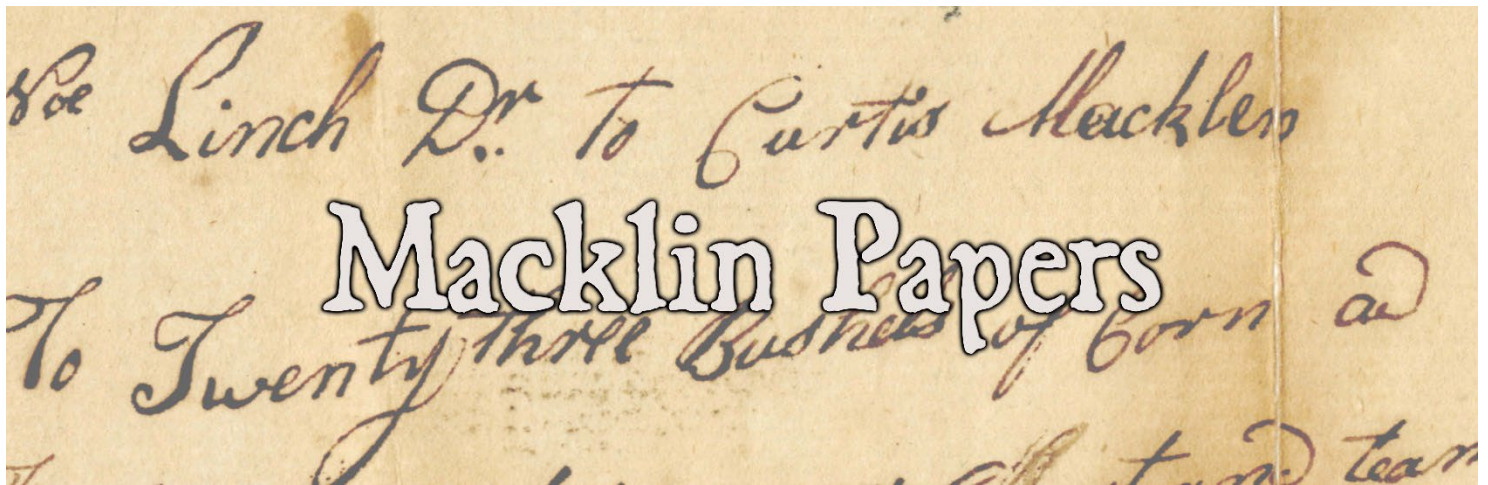 Linch Dr. to Curtis Macklen
Macklin Papers
To Twenty three Bushels of Corn a
and team